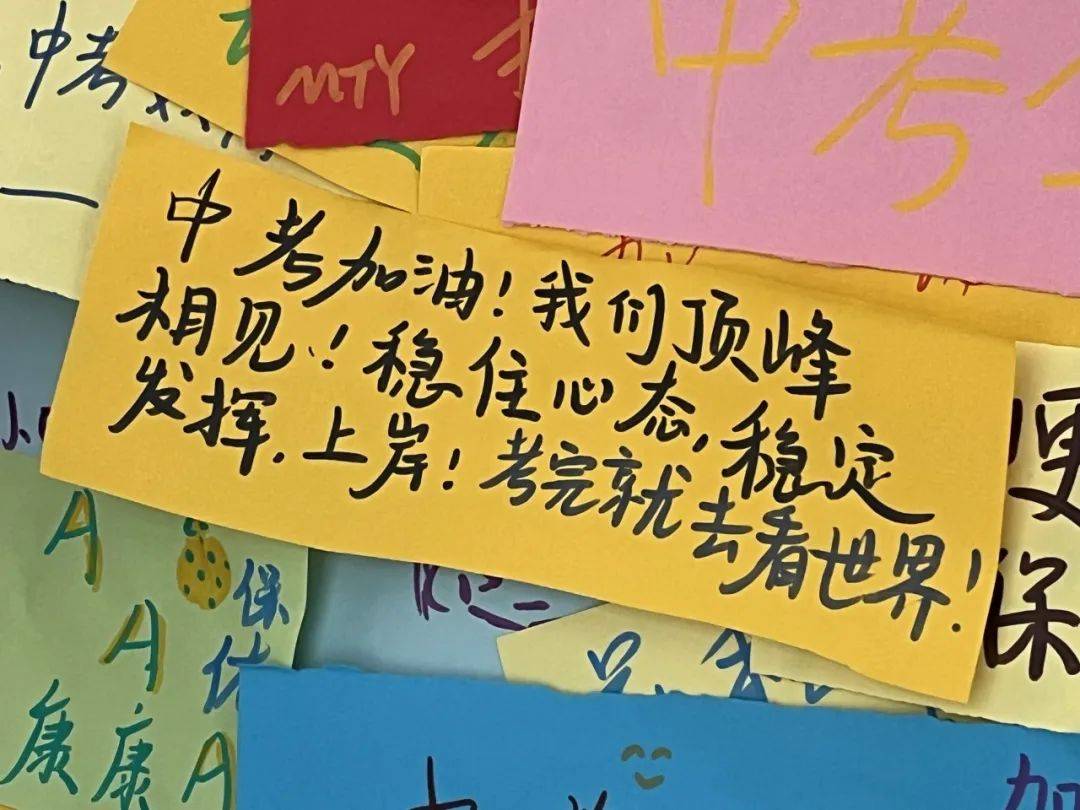 中考
MTY
中考
中考加油！我们顶峰
相见！稳住心态，稳定
发挥，上岸！考完就去看世界！
A
A
A
保
康康
保